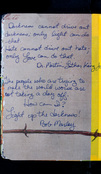 Darkness cannot drive out
darkness, only light can do
that.
Hate cannot drive out hate,
only love can do that.
Dr. Martin Luther King, Jr.
The people who are trying to
make this world worse are
not taking a day off.
How can I?
Light up the darkness!
Bob Marley